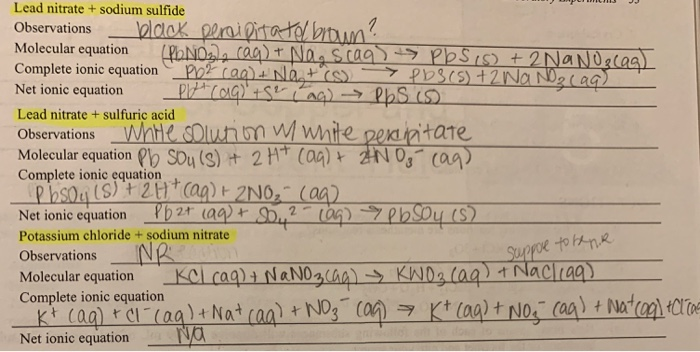 Lead nitrate + sodium sulfide
Observations black peraipitatol brown?
Molecular equation (PbNO3)2 (aq) + Na2S(aq) → PbS(s) + 2NaNO3(aq)
Complete ionic equation Pb2+(aq) + Na2+(s) → PbS(s) + 2NaNO3(aq)
Net ionic equation Pb2+(aq) + S2-(aq) → PbS(s)
Lead nitrate + sulfuric acid
Observations White solution w/ white percipitate
Molecular equation PbSO4(s) + 2H+(aq) + 2NO3-(aq)
Complete ionic equation
PbSO4(s) + 2H+(aq) + 2NO3-(aq)
Net ionic equation Pb2+(aq) + SO42-(aq) → PbSO4(s)
Potassium chloride + sodium nitrate
Observations NR suppose to be N.R
Molecular equation KCl(aq) + NaNO3(aq) → KNO3(aq) + NaCl(aq)
Complete ionic equation
K+(aq) + Cl-(aq) + Na+(aq) + NO3-(aq) → K+(aq) + NO3-(aq) + Na+(aq) + Cl-(aq
Net ionic equation N/a